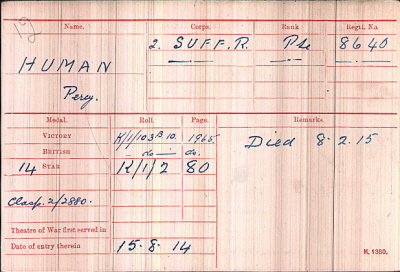 Name. Corps. Rank Regtl. No.
2. SUFF. R. Pte 8640
HUMAN
Percy.
Medal. Roll. Page. Remarks.
VICTORY K/1/103 B 10. 1965 Died 8.2.15
BRITISH — do — do.
14 STAR K/1/2 80
Clasp. 2/2880.
Theatre of War first served in
Date of entry therein 15.8.14
K. 1380.